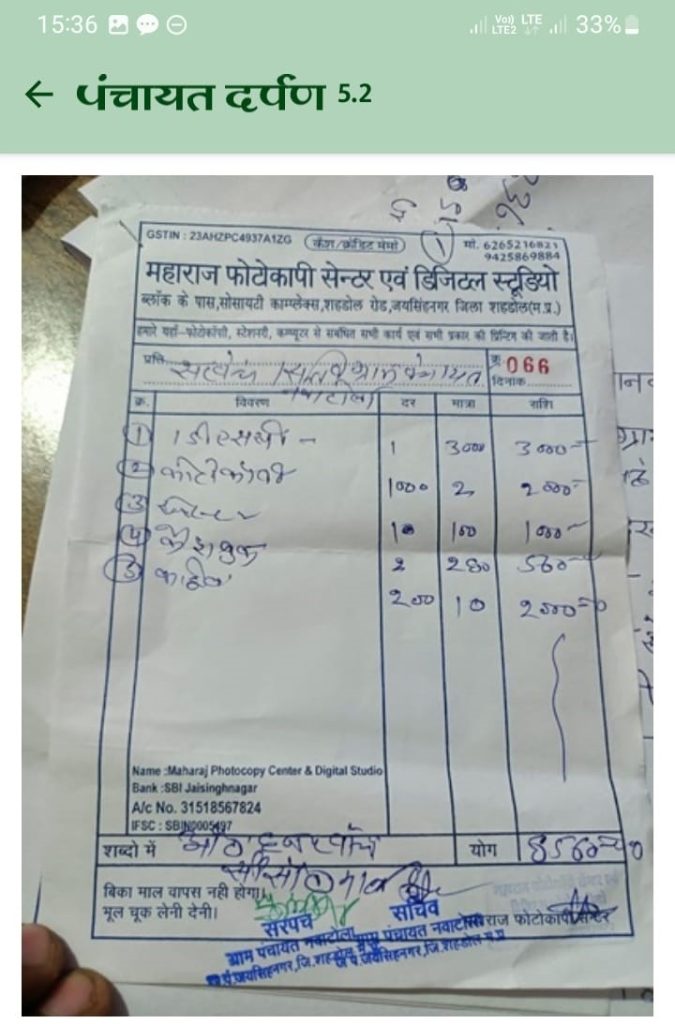 15:36
Vo) LTE
LTE2
33%
← पंचायत दर्पण 5.2
GSTIN : 23AHZPC4937A1ZG
कैश/क्रेडिट मेमो
1
मो. 6265216821
9425869884
महाराज फोटोकापी सेन्टर एवं डिजिटल स्टूडियो
ब्लॉक के पास,सोसायटी काम्प्लेक्स,शहडोल रोड,जयसिंहनगर जिला शहडोल(म.प्र.)
हमारे यहाँ-फोटोकॉपी, स्टेशनरी, कम्प्यूटर से संबंधित सभी कार्य एवं सभी प्रकार की प्रिन्टिंग की जाती है।
प्रति सरपंच सचिव ग्राम पंचायत
नवाटोला
क्र. 066
दिनाक
क्र. विवरण दर मात्रा राशि
1 1 3000 3000
2 फोटोकापी 1000 2 2000
3 10 100 1000
4 कैशबुक 2 280 560
5 200 10 2000
Name :Maharaj Photocopy Center & Digital Studio
Bank :SBI Jaisinghnagar
A/c No. 31518567824
IFSC : SBIN0005497
शब्दो में आठ हजार पांच
सौ साठ मात्र
योग 8560
बिका माल वापस नही होगा।
भूल चूक लेनी देनी।
सरपंच
ग्राम पंचायत नवाटोला
ज.पं.जयसिंहनगर,जि.शहडोल म.प्र
सचिव
ग्राम पंचायत नवाटोला
ज.पं.जयसिंहनगर,जि.शहडोल म.प्र
महाराज फोटोकापी सेन्टर